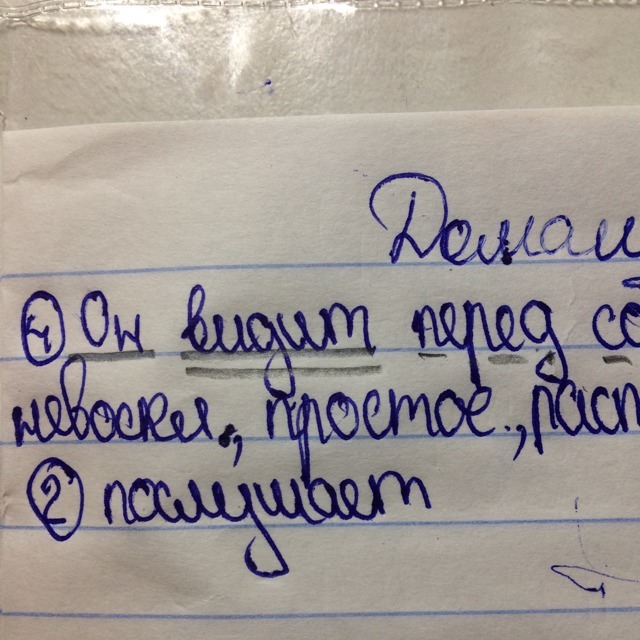 Домаш
① Он видит перед со
невоски, простое., расп
② послушает